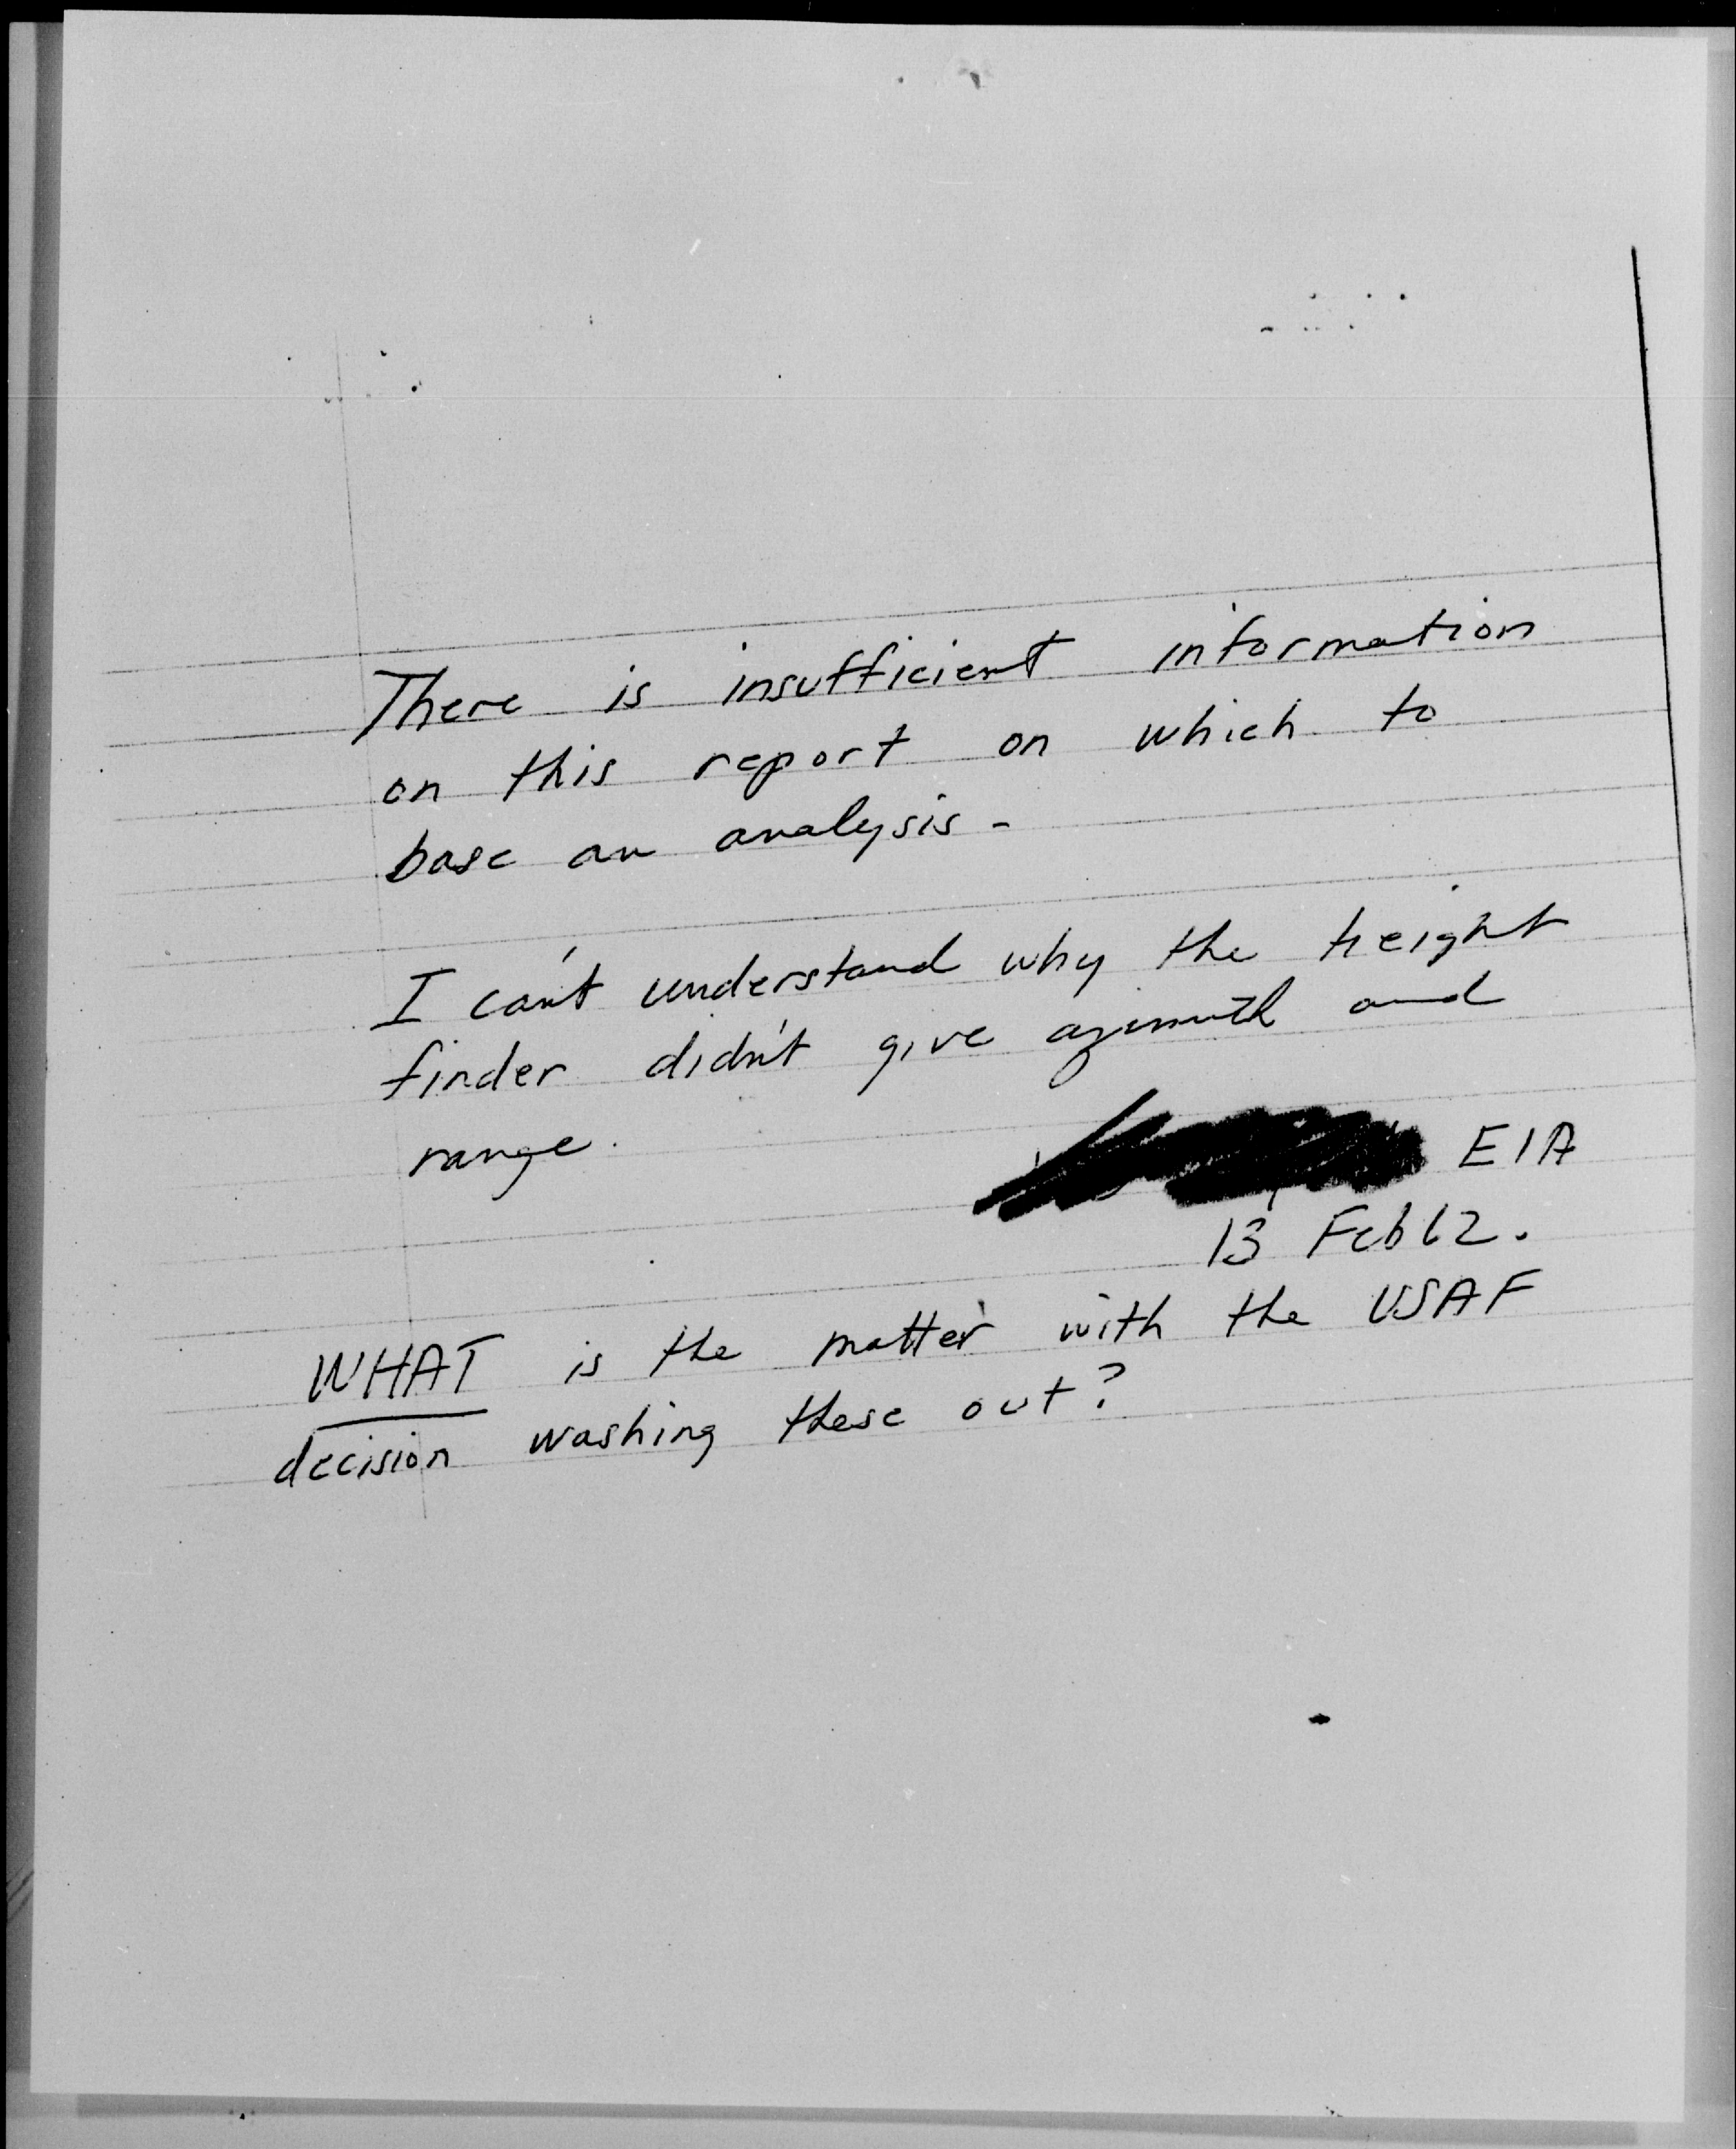 There is insufficient information
on this report on which to
base an analysis -
I can't understand why the height
finder didn't give azimuth and
range.
E1A
13 Feb 62.
WHAT is the matter with the USAF
decision washing these out?